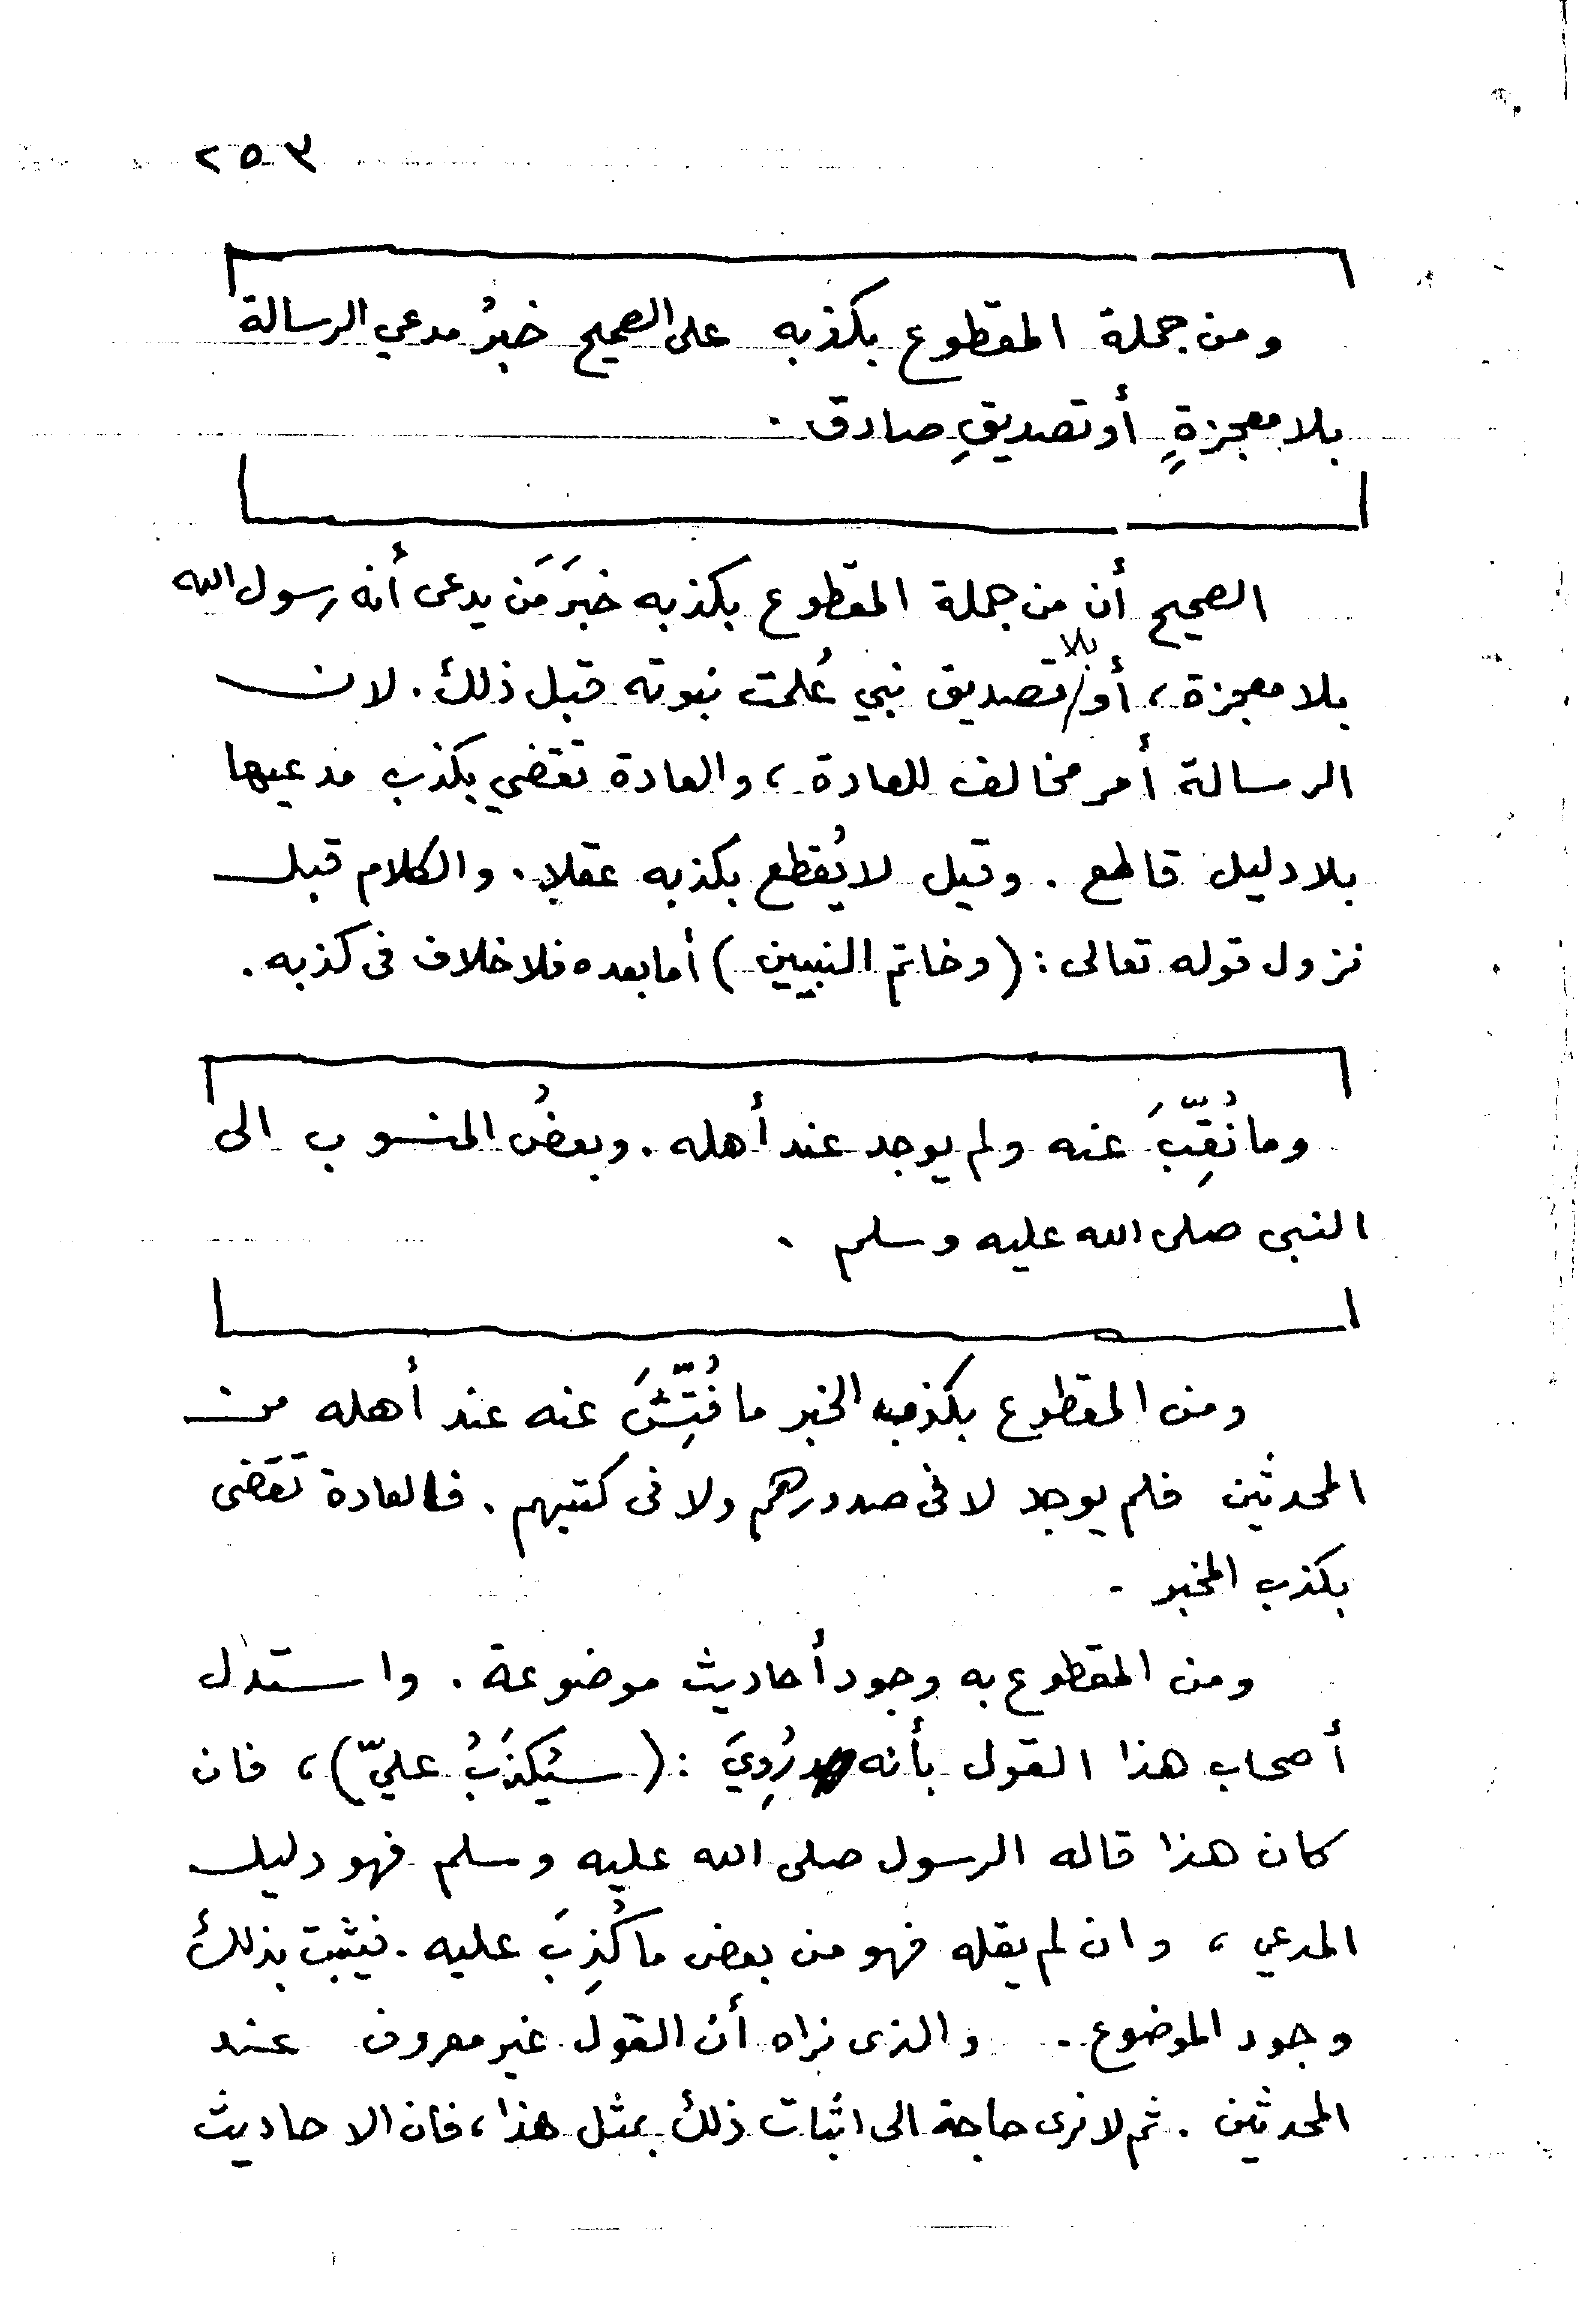 ٢٥٣
ومن جملة المقطوع بكذبه على الصحيح خبرُ مدعي الرسالة
بلا معجزةٍ أو تصديقِ صادق .
الصحيح أن من جملة المقطوع بكذبه خبَرَ مَن يدعى أنه رسول الله
بلا معجزة ، أو بلا تصديق نبي عُلمت نبوته قبل ذلك . لان
الرسالة أمر مخالف للعادة ، والعادة تقضي بكذب مدعيها
بلا دليل قاطع . وقيل لا يُقطع بكذبه عقلا . والكلام قبل
نزول قوله تعالى : ( وخاتم النبيين ) أما بعده فلا خلاف فى كذبه .
وما نُقِّبَ عنه ولم يوجد عند أهله . وبعضُ المنسوب الى
النبى صلى الله عليه وسلم .
ومن المقطوع بكذبه الخبر ما فُتِّشَ عنه عند أهله من
المحدثين فلم يوجد لا فى صدورهم ولا فى كتبهم . فالعادة تقضى
بكذب المخبر .
ومن المقطوع به وجود أحاديث موضوعة . واستدل
أصحاب هذا القول بأنه رُوِيَ : ( سيُكذَبُ عليّ ) ، فان
كان هذا قاله الرسول صلى الله عليه وسلم فهو دليل
المدعي ، وان لم يقله فهو من بعض ما كُذِبَ عليه . فيثبت بذلك
وجود الموضوع . والذى نراه أن القول غير معروف عند
المحدثين . ثم لا نرى حاجة الى اثبات ذلك بمثل هذا ، فان الاحاديث